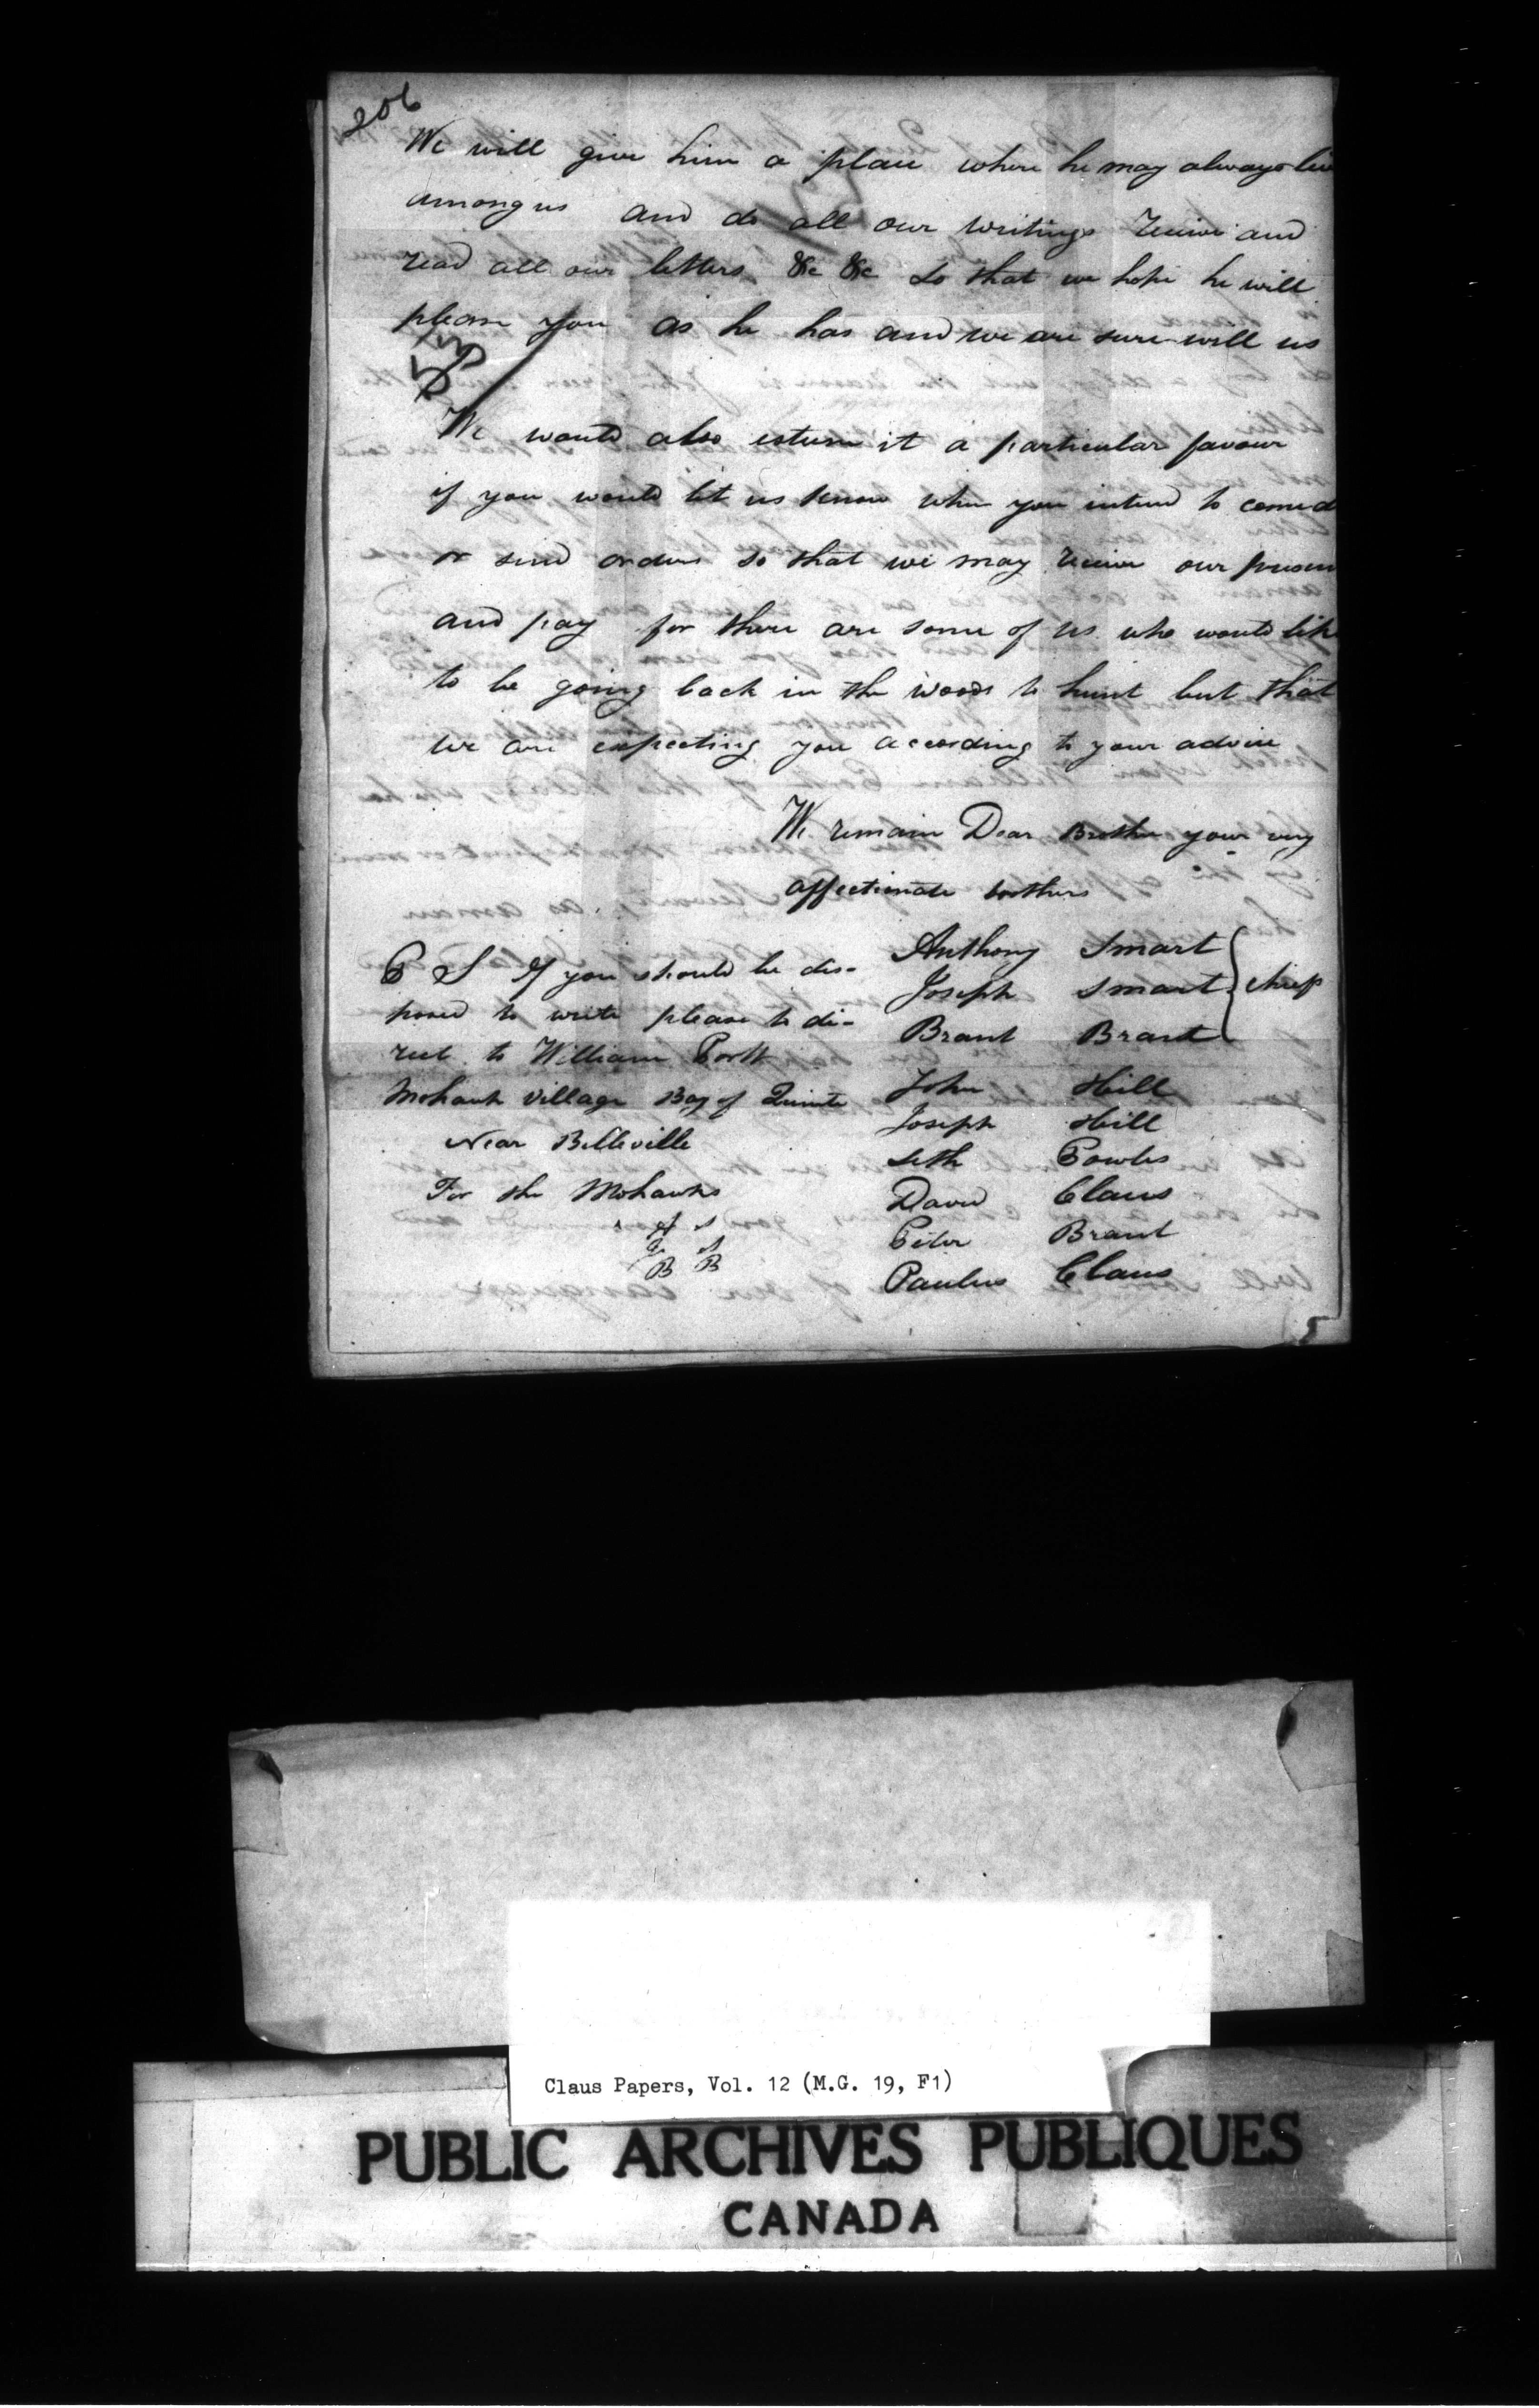 206
We will give him a place where he may always live
among us and do all our writings receive and
read all our letters &c &c so that we hope he will
please you as he has and we are sure will us
We would also esteem it a particular favour
if you would let us know when you intend to come d
or send orders so that we may receive our presen
and pay for there are some of us who would like
to be going back in the woods to hunt but that
we are expecting you according to your advice
We remain Dear Brother your very
affectionate brothers
P S If you should be dis-
posed to write please to di-
rect to William Portt
Mohawk Village Bay of Quinte
Near Belleville
For the Mohawks
A S
J S
B B
Anthony Smart
Joseph Smart } chiefs
Brant Brant
John Hill
Joseph Hill
Seth Powles
David Claus
Peter Brant
Paulus Claus
Claus Papers, Vol. 12 (M.G. 19, F1)
PUBLIC ARCHIVES PUBLIQUES
CANADA